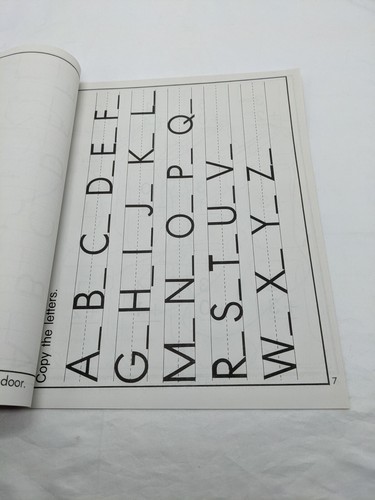 door.
Copy the letters.
A_ B_ C_ D_ E_ F_
G_ H_ I_ J_ K_ L_
M_ N_ O_ P_ Q_
R_ S_ T_ U_ V_
W_ X_ Y_ Z_
7